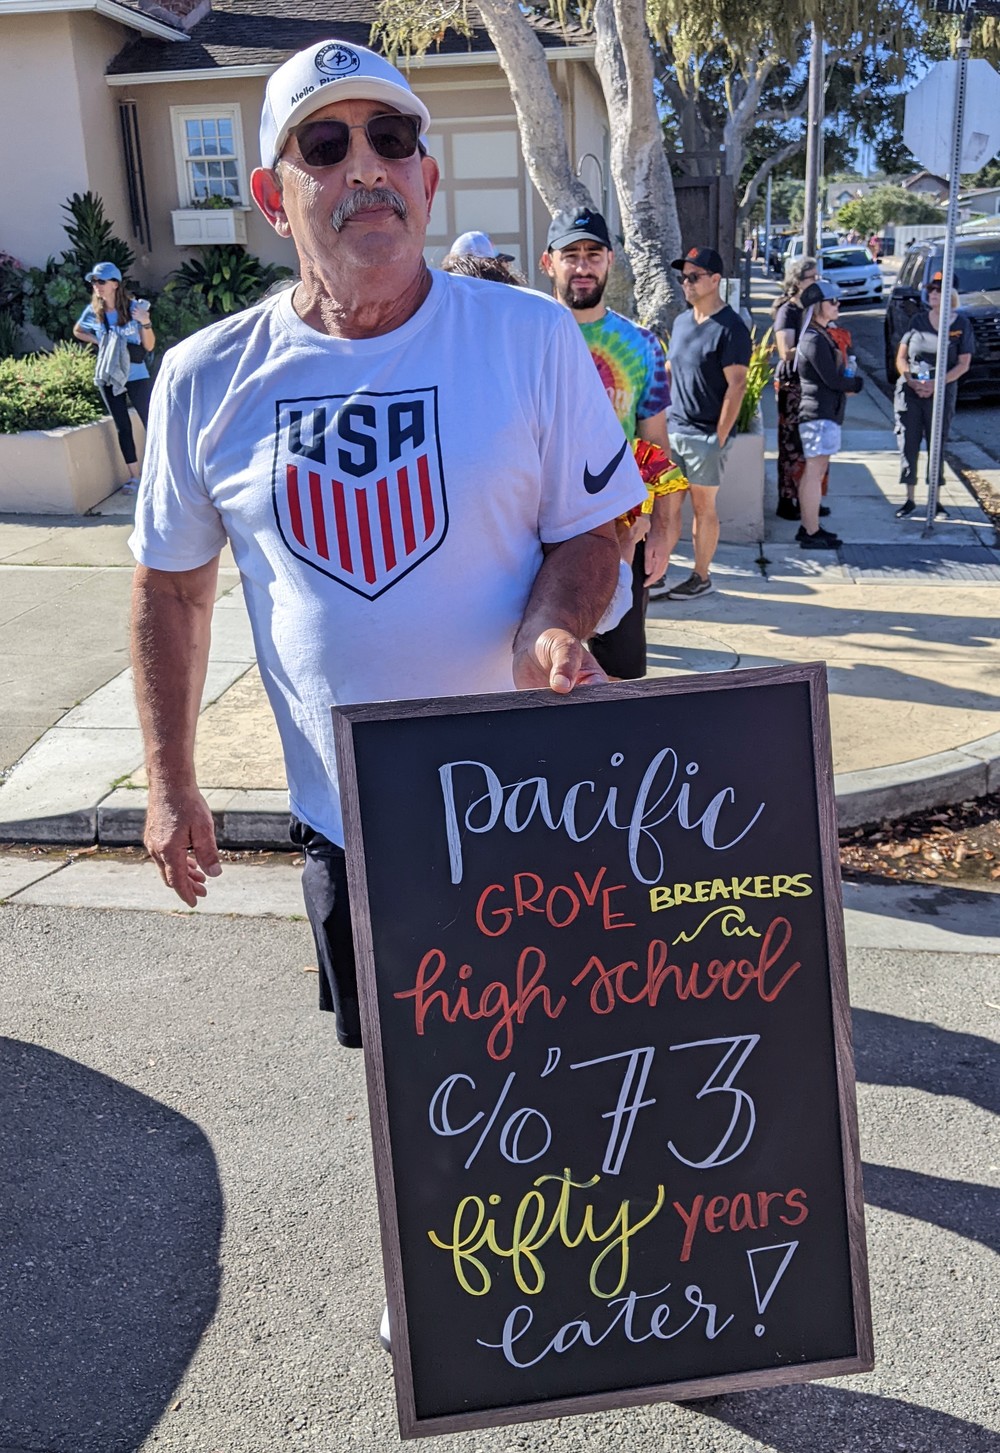 Aiello
USA
Pacific
GROVE BREAKERS
high school
c/o '73
fifty years
later!
PINE